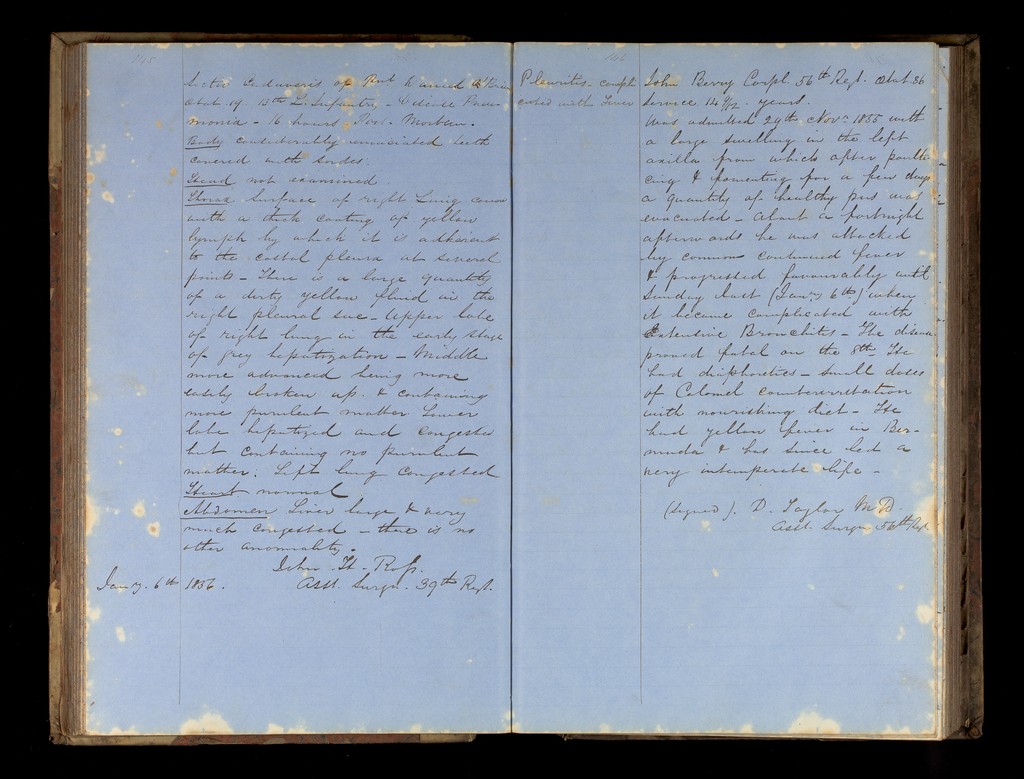 145
Sectio Cadaveris of Pvt Daniel O'Brien
Aetat 19. 13th L. Infantry - Disease Pneu-
monia - 16 hours Post Mortem.
Body considerably emaciated teeth
covered with Sordes.
Head not examined.
Thorax Surface of right Lung
with a thick coating of yellow
lymph by which it is adherent
to the costal pleura at several
points - There is a large quantity
of a dirty yellow fluid in the
right pleural sac - Upper lobe
of right lung in the early stage
of grey hepatization - Middle
more advanced being more
easily broken up. & containing
more purulent matter Lower
lobe hepatized and congested
but containing no purulent
matter. Left lung congested
Heart normal
Abdomen Liver large & very
much congested - there is no
other anormality.
John H. Ross.
Jany. 6th 1856. Asst. Surgn. 39th Regt.
146
Pleuritis - compli
cated with Liver
John Berry Corpl. 56th Regt. Aetat 36
Service 14 9/12 years.
Was admitted 29th Novr. 1855 with
a large swelling in the left
axilla from which after poulti-
cing & fomenting for a few days
a quantity of healthy pus was
evacuated - About a fortnight
afterwards he was attacked
by common continued fever
& progressed favourably until
Sunday last (Jany 6th) when
it became complicated with
Extensive Bronchitis - The disease
proved fatal on the 8th. He
had diaphoretics - small doses
of Calomel counterirritation
with nourishing diet - He
had yellow fever in Ber-
muda & has since led a
very intemperate life -
(signed). D. Taylor M.D.
Asst. Surgn 56th Regt